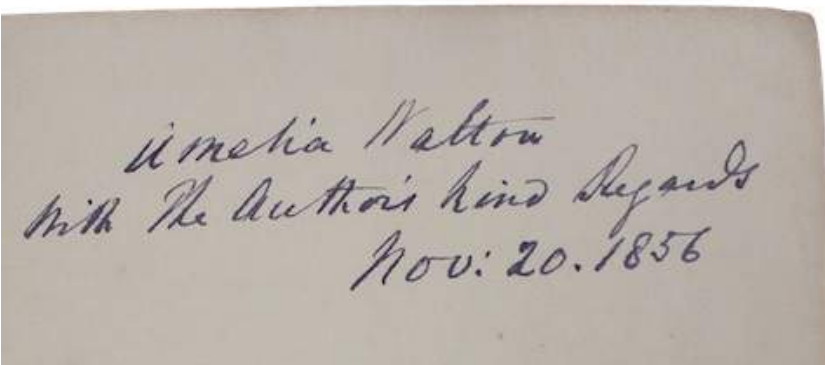 Amelia Walton
With The Author's kind Regards
Nov: 20. 1856